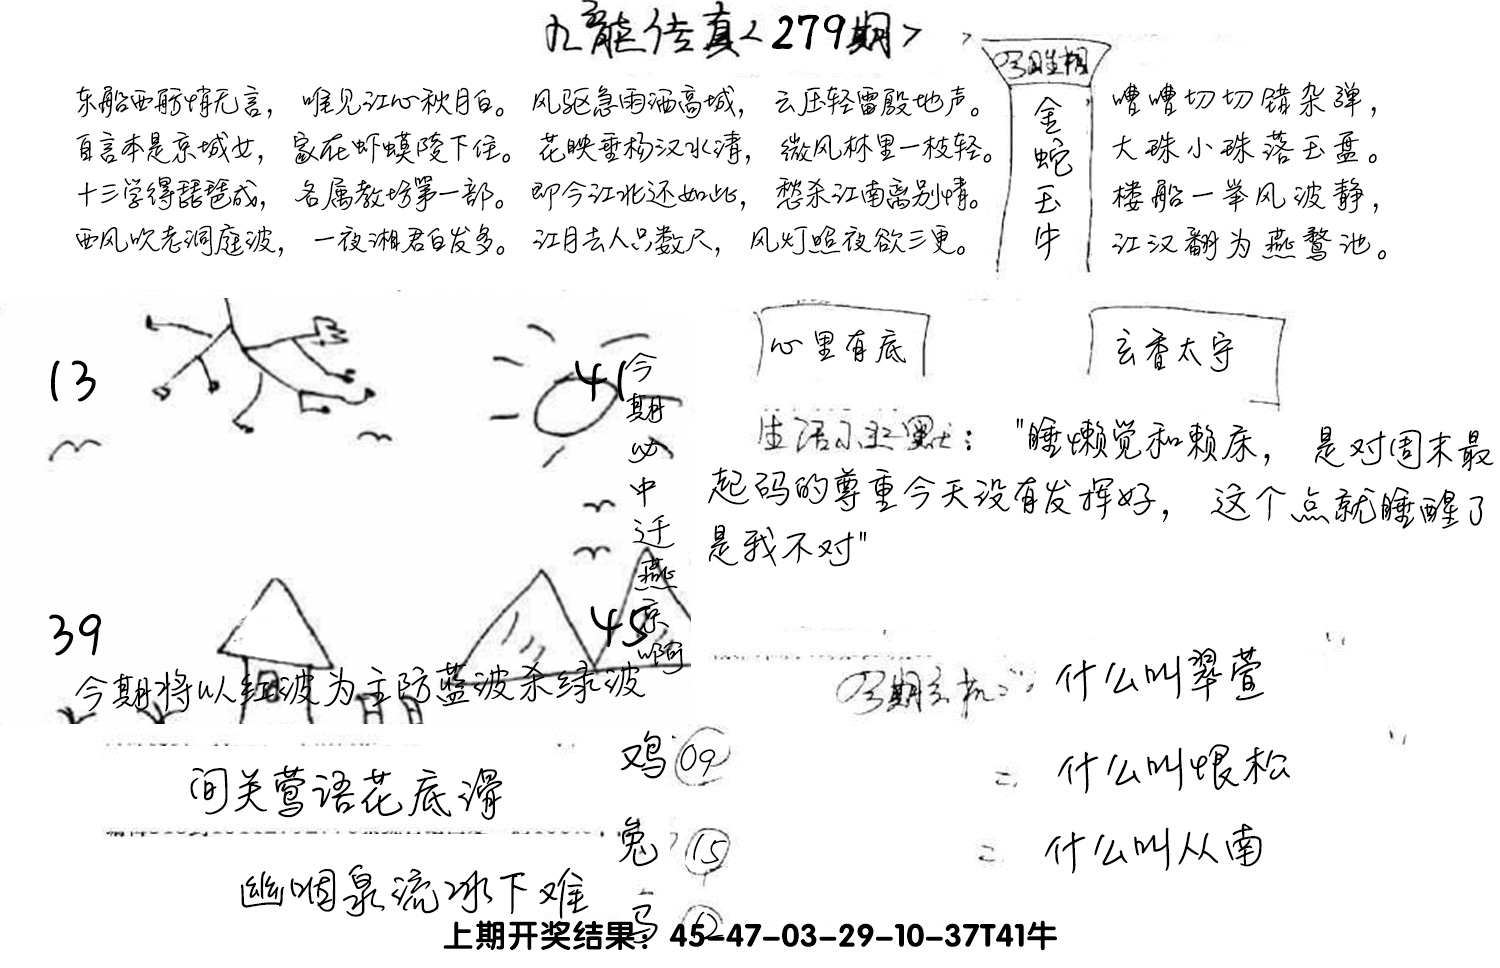 九龙传真<279期>
东船西舫悄无言， 唯见江心秋月白。 风驱急雨洒高城， 云压轻雷殷地声。
自言本是京城女， 家在虾蟆陵下住。 花映垂杨汉水清， 微风林里一枝轻。
十三学得琵琶成， 名属教坊第一部。 即今江北还如此， 愁杀江南离别情。
西风吹老洞庭波， 一夜湘君白发多。 江月去人只数尺， 风灯照夜欲三更。
金蛇玉牛
嘈嘈切切错杂弹，
大珠小珠落玉盘。
楼船一举风波静，
江汉翻为燕鹜池。
13
41
39
45
今期必中迁燕京啊
今期将以红波为主防蓝波杀绿波
心里有底
玄香太守
"睡懒觉和赖床， 是对周末最
起码的尊重今天没有发挥好， 这个点就睡醒了
是我不对"
什么叫翠萱
什么叫恨松
什么叫从南
间关莺语花底滑
幽咽泉流冰下难
鸡 09
兔 15
马
上期开奖结果：45-47-03-29-10-37T41牛